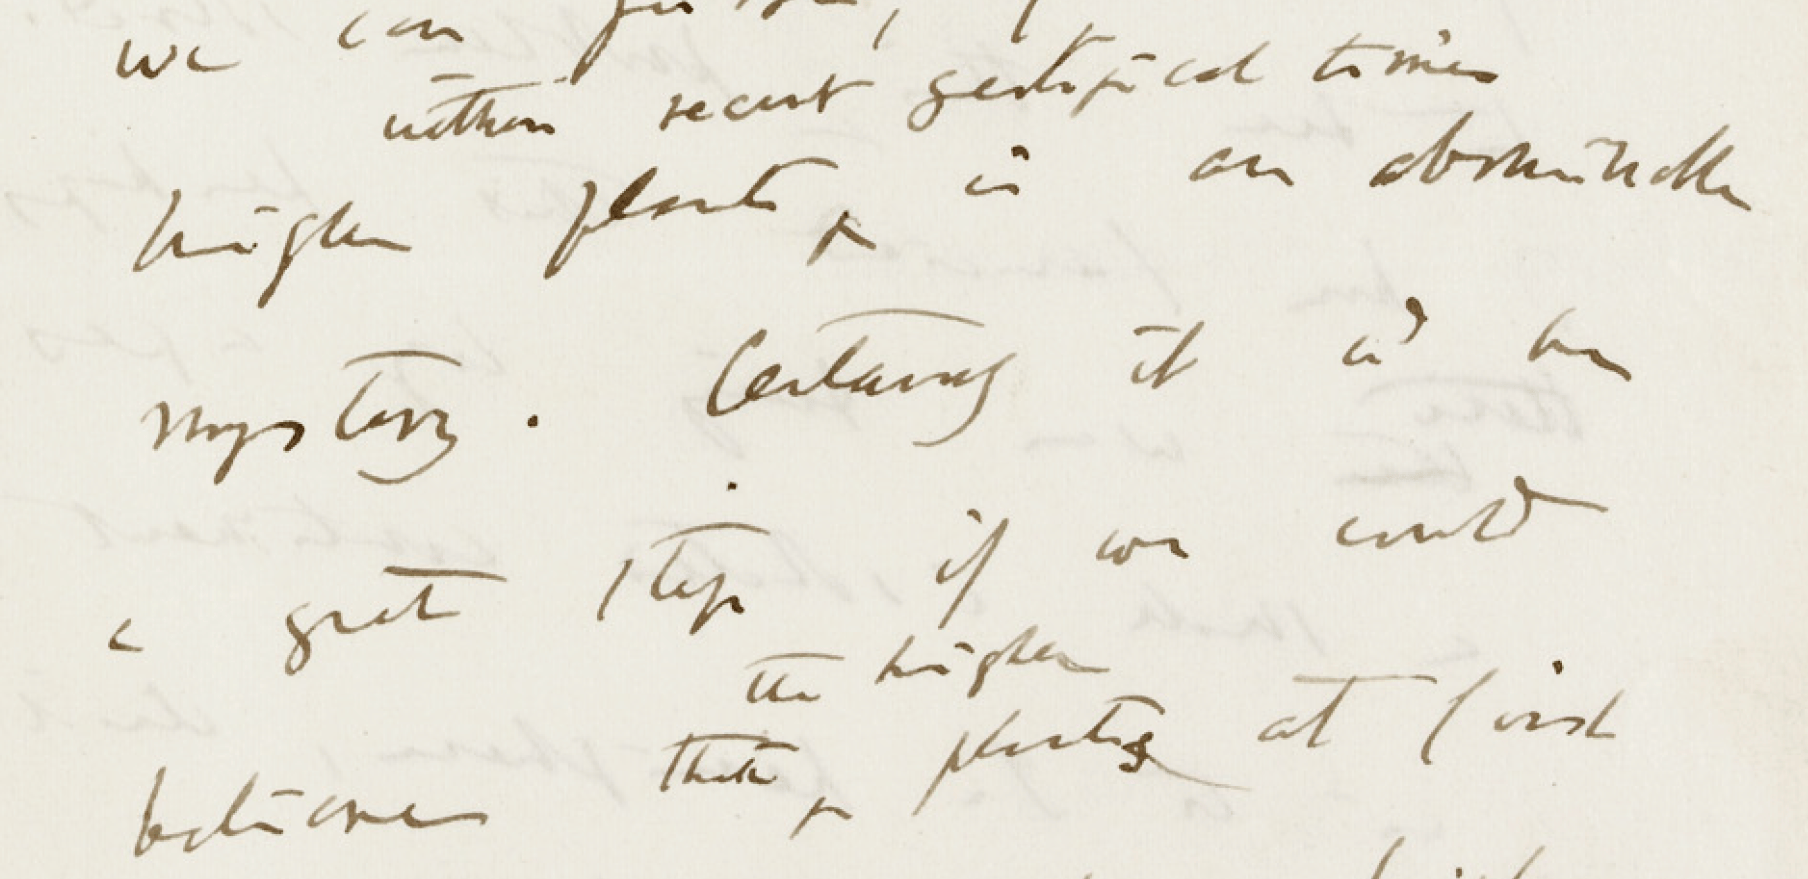 we can judge,
within recent geological times
higher plants is an abominable
mystery. Certainly it wd be
a great step if we could
the higher
believe that plants at first